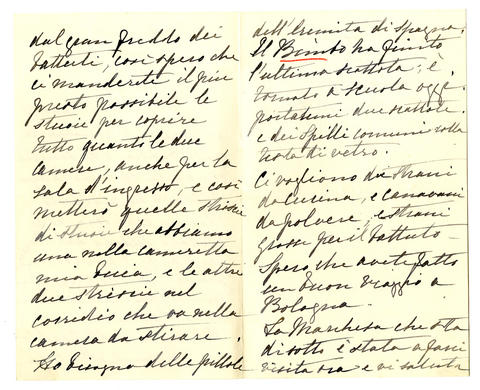 dal gran freddo dei
battuti, così spero che
ci manderete il più
presto possibile le
stuoie per coprire
tutto quanto le due
camere, anche per la
sala d'ingresso, e così
metterò quelle striscie
di stuoie che abbiamo
una nella cameretta
mia Lucia, e le altre
due striscie nel
corridio che va nella
camera da stirare.
Ho bisogno delle pillole
dell'Eremita di Spagna.
Il Bimbo ha finito
l'ultima scattola; è
tornato a scuola oggi.
portatemi due scattole
e dei spilli comuni colla
testa di vetro.
Ci vogliono dei strani
da cucina, e canavani
da polvere, e strani
grossi per il battuto -
Spero che avete fatto
un buon viaggio a
Bologna.
La Marchesa che sta
di sotto è stata a farmi
visita ora e vi saluta